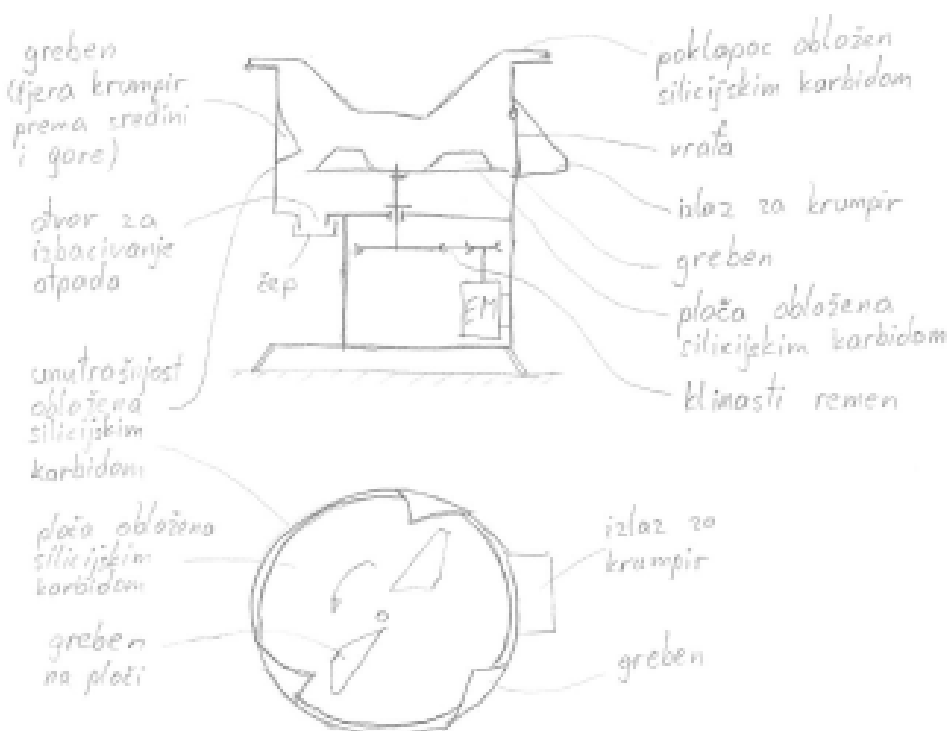 greben
(tjera krumpir
prema sredini
i gore)
otvor za
izbacivanje
otpada
čep
unutrašnjost
obložena
silicijskim
karbidom
EM
poklopac obložen
silicijskim karbidom
vrata
izlaz za krumpir
greben
ploča obložena
silicijskim karbidom
klinasti remen
ploča obložena
silicijskim
karbidom
greben
na ploči
izlaz za
krumpir
greben